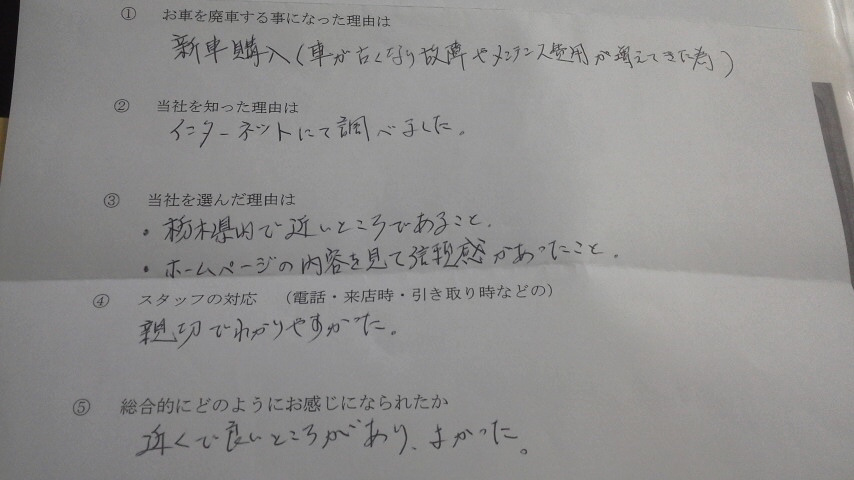 ① お車を廃車する事になった理由は
新車購入(車が古くなり故障やメンテナンス費用が増えてきた為)
② 当社を知った理由は
インターネットにて調べました。
③ 当社を選んだ理由は
・栃木県内で近いところであること.
・ホームページの内容を見て信頼感があったこと.
④ スタッフの対応 (電話・来店時・引き取り時などの)
親切でわかりやすかった。
⑤ 総合的にどのようにお感じになられたか
近くで良いところがあり、よかった。